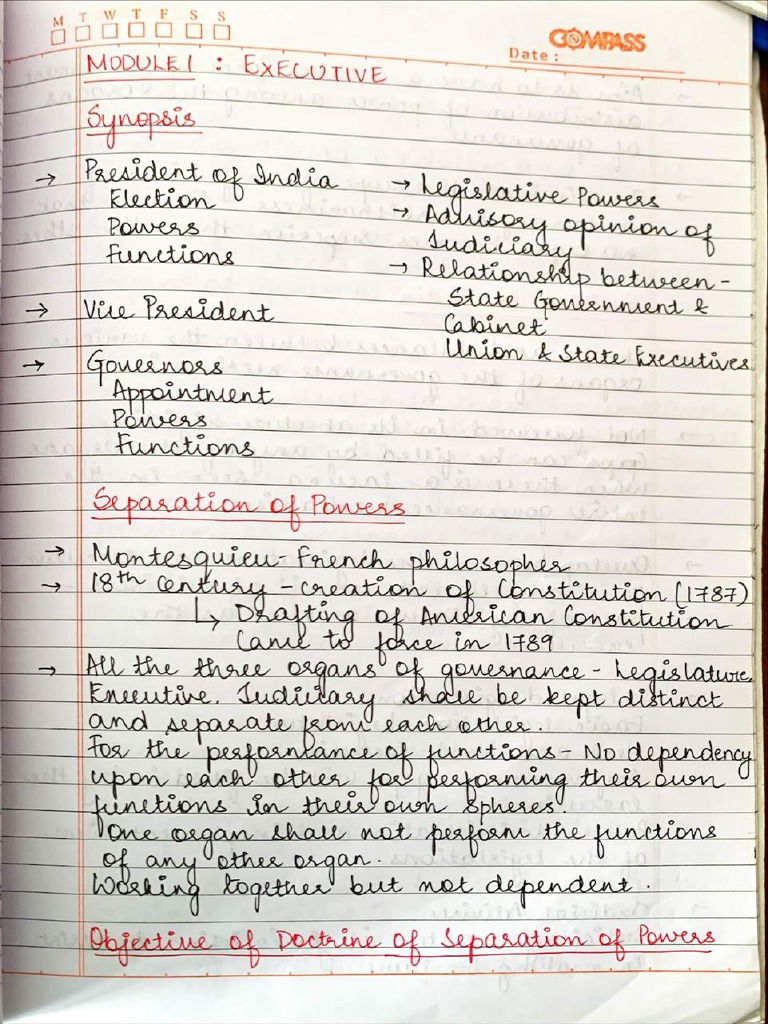 M T W T F S S
COMPASS
Date :
MODULE 1 : EXECUTIVE
Synopsis
→ President of India
Election
Powers
Functions
→ Vice President
→ Governors
Appointment
Powers
Functions
→ Legislative Powers
→ Advisory opinion of
Judiciary
→ Relationship between -
State Government &
Cabinet
Union & State Executives
Separation of Powers
→ Montesquieu - French philosopher
→ 18th Century - creation of Constitution (1787)
↳ Drafting of American Constitution
Came to force in 1789
→ All the three organs of governance - Legislature,
Executive, Judiciary shall be kept distinct
and separate from each other.
For the performance of functions - No dependency
upon each other for performing their own
functions in their own spheres.
One organ shall not perform the functions
of any other organ.
Working together but not dependent.
Objective of Doctrine of Separation of Powers